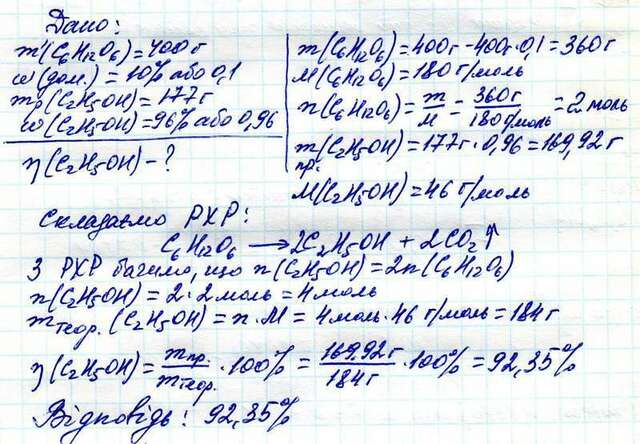 Дано:
m'(C₆H₁₂O₆) = 400 г
ω(дом.) = 10% або 0,1
mр(C₂H₅OH) = 177 г
ω(C₂H₅OH) = 96% або 0,96
η(C₂H₅OH) - ?
m(C₆H₁₂O₆) = 400г - 400г·0,1 = 360г
M(C₆H₁₂O₆) = 180 г/моль
n(C₆H₁₂O₆) = m/M = 360г/180г/моль = 2 моль
mпр.(C₂H₅OH) = 177г · 0,96 = 169,92 г
M(C₂H₅OH) = 46 г/моль
Складаємо РХР:
C₆H₁₂O₆ → 2C₂H₅OH + 2CO₂↑
З РХР бачимо, що n(C₂H₅OH) = 2n(C₆H₁₂O₆)
n(C₂H₅OH) = 2 · 2 моль = 4 моль
mтеор.(C₂H₅OH) = n · M = 4 моль · 46 г/моль = 184 г
η(C₂H₅OH) = mпр./mтеор. · 100% = 169,92 г/184 г · 100% = 92,35%
Відповідь: 92,35%